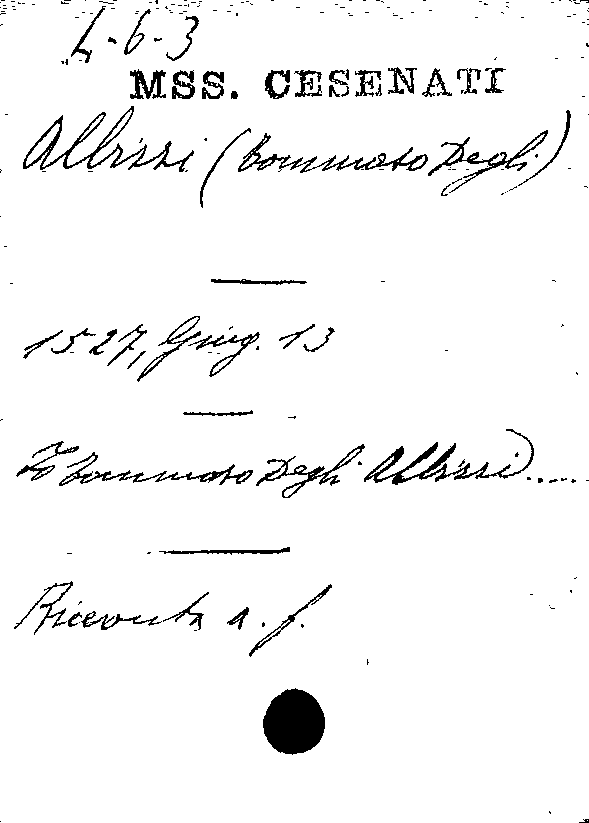 L-6-3
MSS. CESENATI
Albizzi (Tommaso Degli)
1527, Giug. 13
Io Tommaso Degli Albizzi.....
Ricevuta a. f.